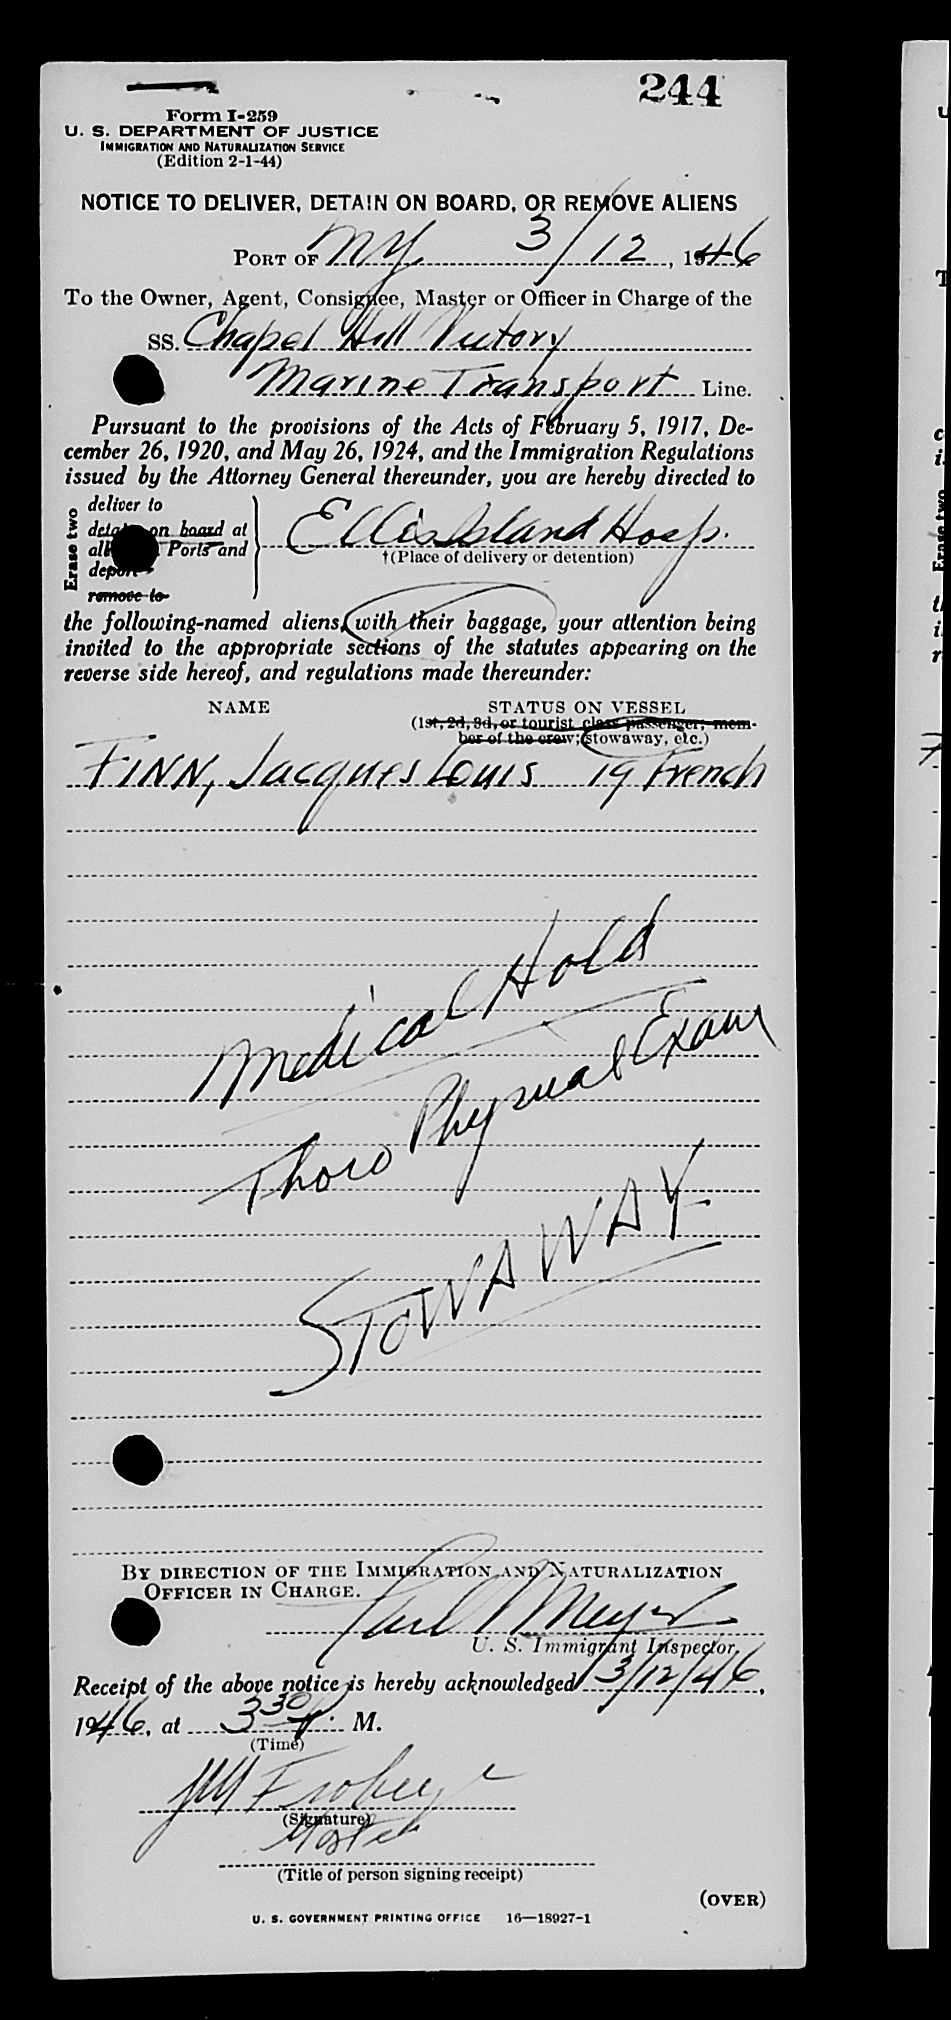 244
Form I-259
U. S. DEPARTMENT OF JUSTICE
IMMIGRATION AND NATURALIZATION SERVICE
(Edition 2-1-44)
NOTICE TO DELIVER, DETAIN ON BOARD, OR REMOVE ALIENS
PORT OF NY 3/12, 1946
To the Owner, Agent, Consignee, Master or Officer in Charge of the
SS. Chapel Hill Victory
Marine Transport Line.
Pursuant to the provisions of the Acts of February 5, 1917, De-
cember 26, 1920, and May 26, 1924, and the Immigration Regulations
issued by the Attorney General thereunder, you are hereby directed to
Erase two
deliver to
on board at
Ports and
remove to
Ellis Island Hosp.
†(Place of delivery or detention)
the following-named aliens, with their baggage, your attention being
invited to the appropriate sections of the statutes appearing on the
reverse side hereof, and regulations made thereunder:
NAME STATUS ON VESSEL
(1st, 2d, 3d, or tourist class passenger; mem-
ber of the crew; stowaway, etc.)
FINN, Jacques Louis 19 French
Medical Hold
Thoro Physical Exam
STOWAWAY
BY DIRECTION OF THE IMMIGRATION AND NATURALIZATION
OFFICER IN CHARGE.
Meyer
U. S. Immigrant Inspector.
Receipt of the above notice is hereby acknowledged 3/12/46,
1946, at 3 30 P. M.
(Time)
(Signature)
Master
(Title of person signing receipt)
(OVER)
U. S. GOVERNMENT PRINTING OFFICE 16—18927-1